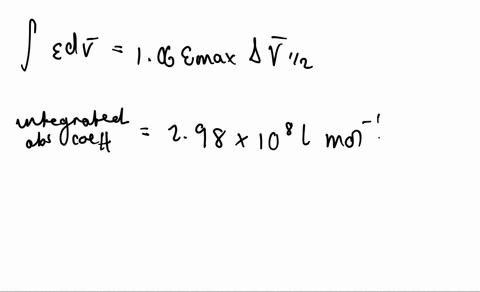 ∫ εdν̄ = 1.06 εmax Δν̄ 1/2
integrated
abs coeff = 2.98 × 10⁸ l mol⁻¹